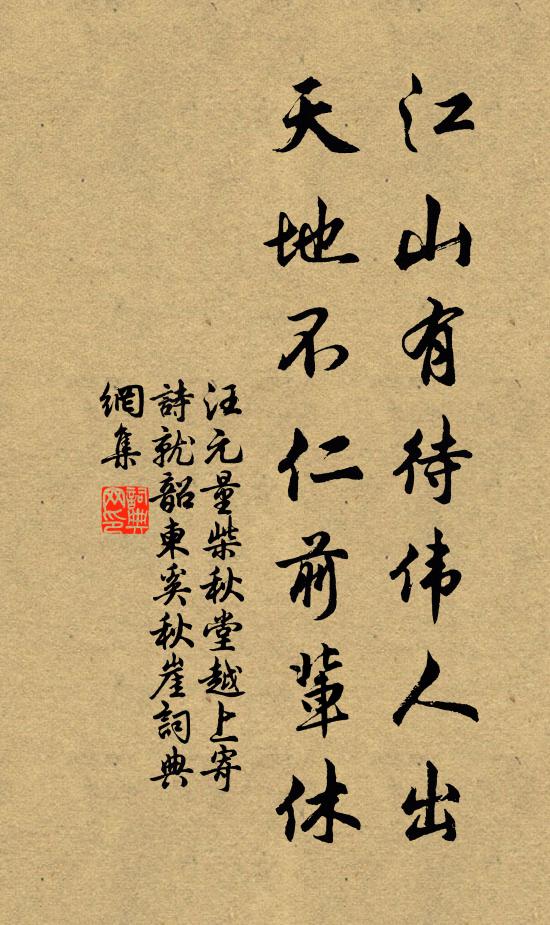 江山有待伟人出
天地不仁前輩休
汪元量柴秋堂越上寄
詩就韶東奚秋崖詞典
網集
詞典
网印